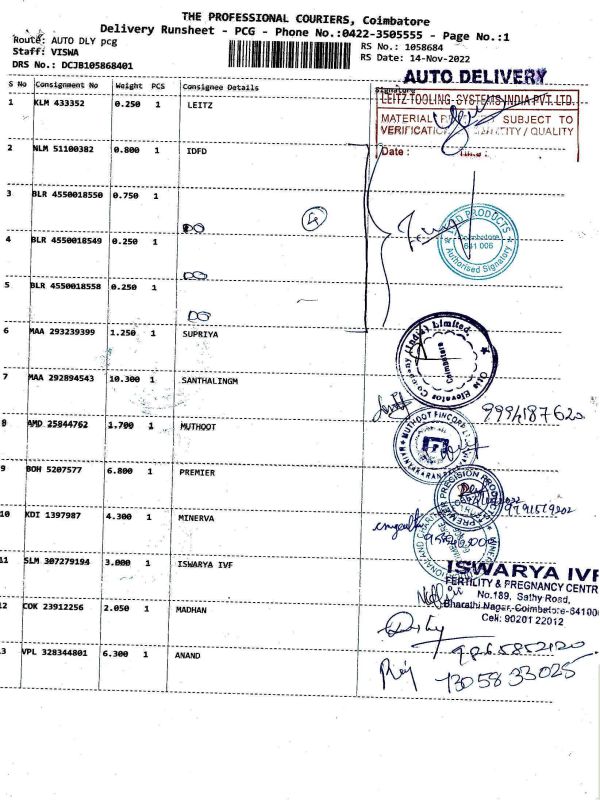 THE PROFESSIONAL COURIERS, Coimbatore
Delivery Runsheet - PCG - Phone No.:0422-3505555 - Page No.:1
Route: AUTO DLY pcg
Staff: VISWA
DRS No.: DCJB105868401
RS No.: 1058684
RS Date: 14-Nov-2022
AUTO DELIVERY
S No Consignment No Weight PCS Consignee Details Signature
1 KLM 433352 0.250 1 LEITZ
LEITZ TOOLING SYSTEMS INDIA PVT. LTD.
MATERIAL SUBJECT TO
VERIFICATION QUANTITY / QUALITY
Date :
2 NLM 51100382 0.800 1 IDFD
3 BLR 4550018550 0.750 1
DO
4
PRODUCTS
Coimbatore
641 006
Authorised Signatory
4 BLR 4550018549 0.250 1
DO
5 BLR 4550018558 0.250 1
DO
6 MAA 293239399 1.250 1 SUPRIYA
Otis Elevator Company (India) Limited.
Coimbatore
7 MAA 292894543 10.300 1 SANTHALINGM
9994187620
8 AMD 25844762 1.700 1 MUTHOOT
MUTHOOT FINCORP
9 BOH 5207577 6.800 1 PREMIER
PREMIER PRECISION PRODUCTS
9791579202
10 KDI 1397987 4.300 1 MINERVA
11 SLM 307279194 3.000 1 ISWARYA IVF
ISWARYA IVF
FERTILITY & PREGNANCY CENTR
No.189, Sathy Road,
Bharathi Nagar, Coimbatore-64100
Cell: 90201 22012
12 COK 23912256 2.050 1 MADHAN
13 VPL 328344801 6.300 1 ANAND
73058 33025